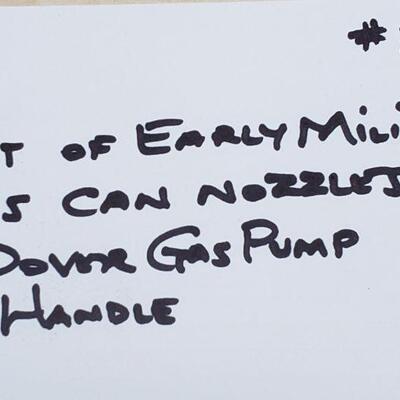 #
T OF EARLY MILI
S CAN NOZZLES
DOVER GAS PUMP
HANDLE